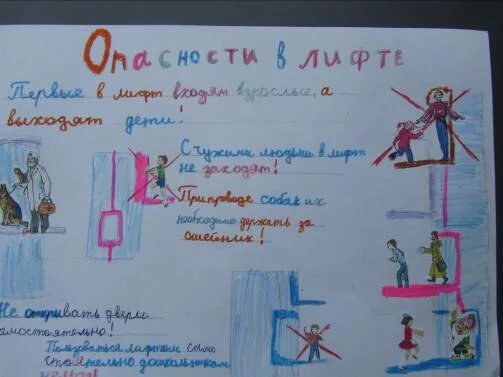 Опасности в лифте
Первые в лифт входят взрослые, а
выходят дети!
С чужими людьми в лифт
не заходят!
При проводе собак их
необходимо держать за
ошейник!
Не открывать двери
амостоятельно!
Пользоваться лифтом само
стоятельно дошкольникам
нельзя!